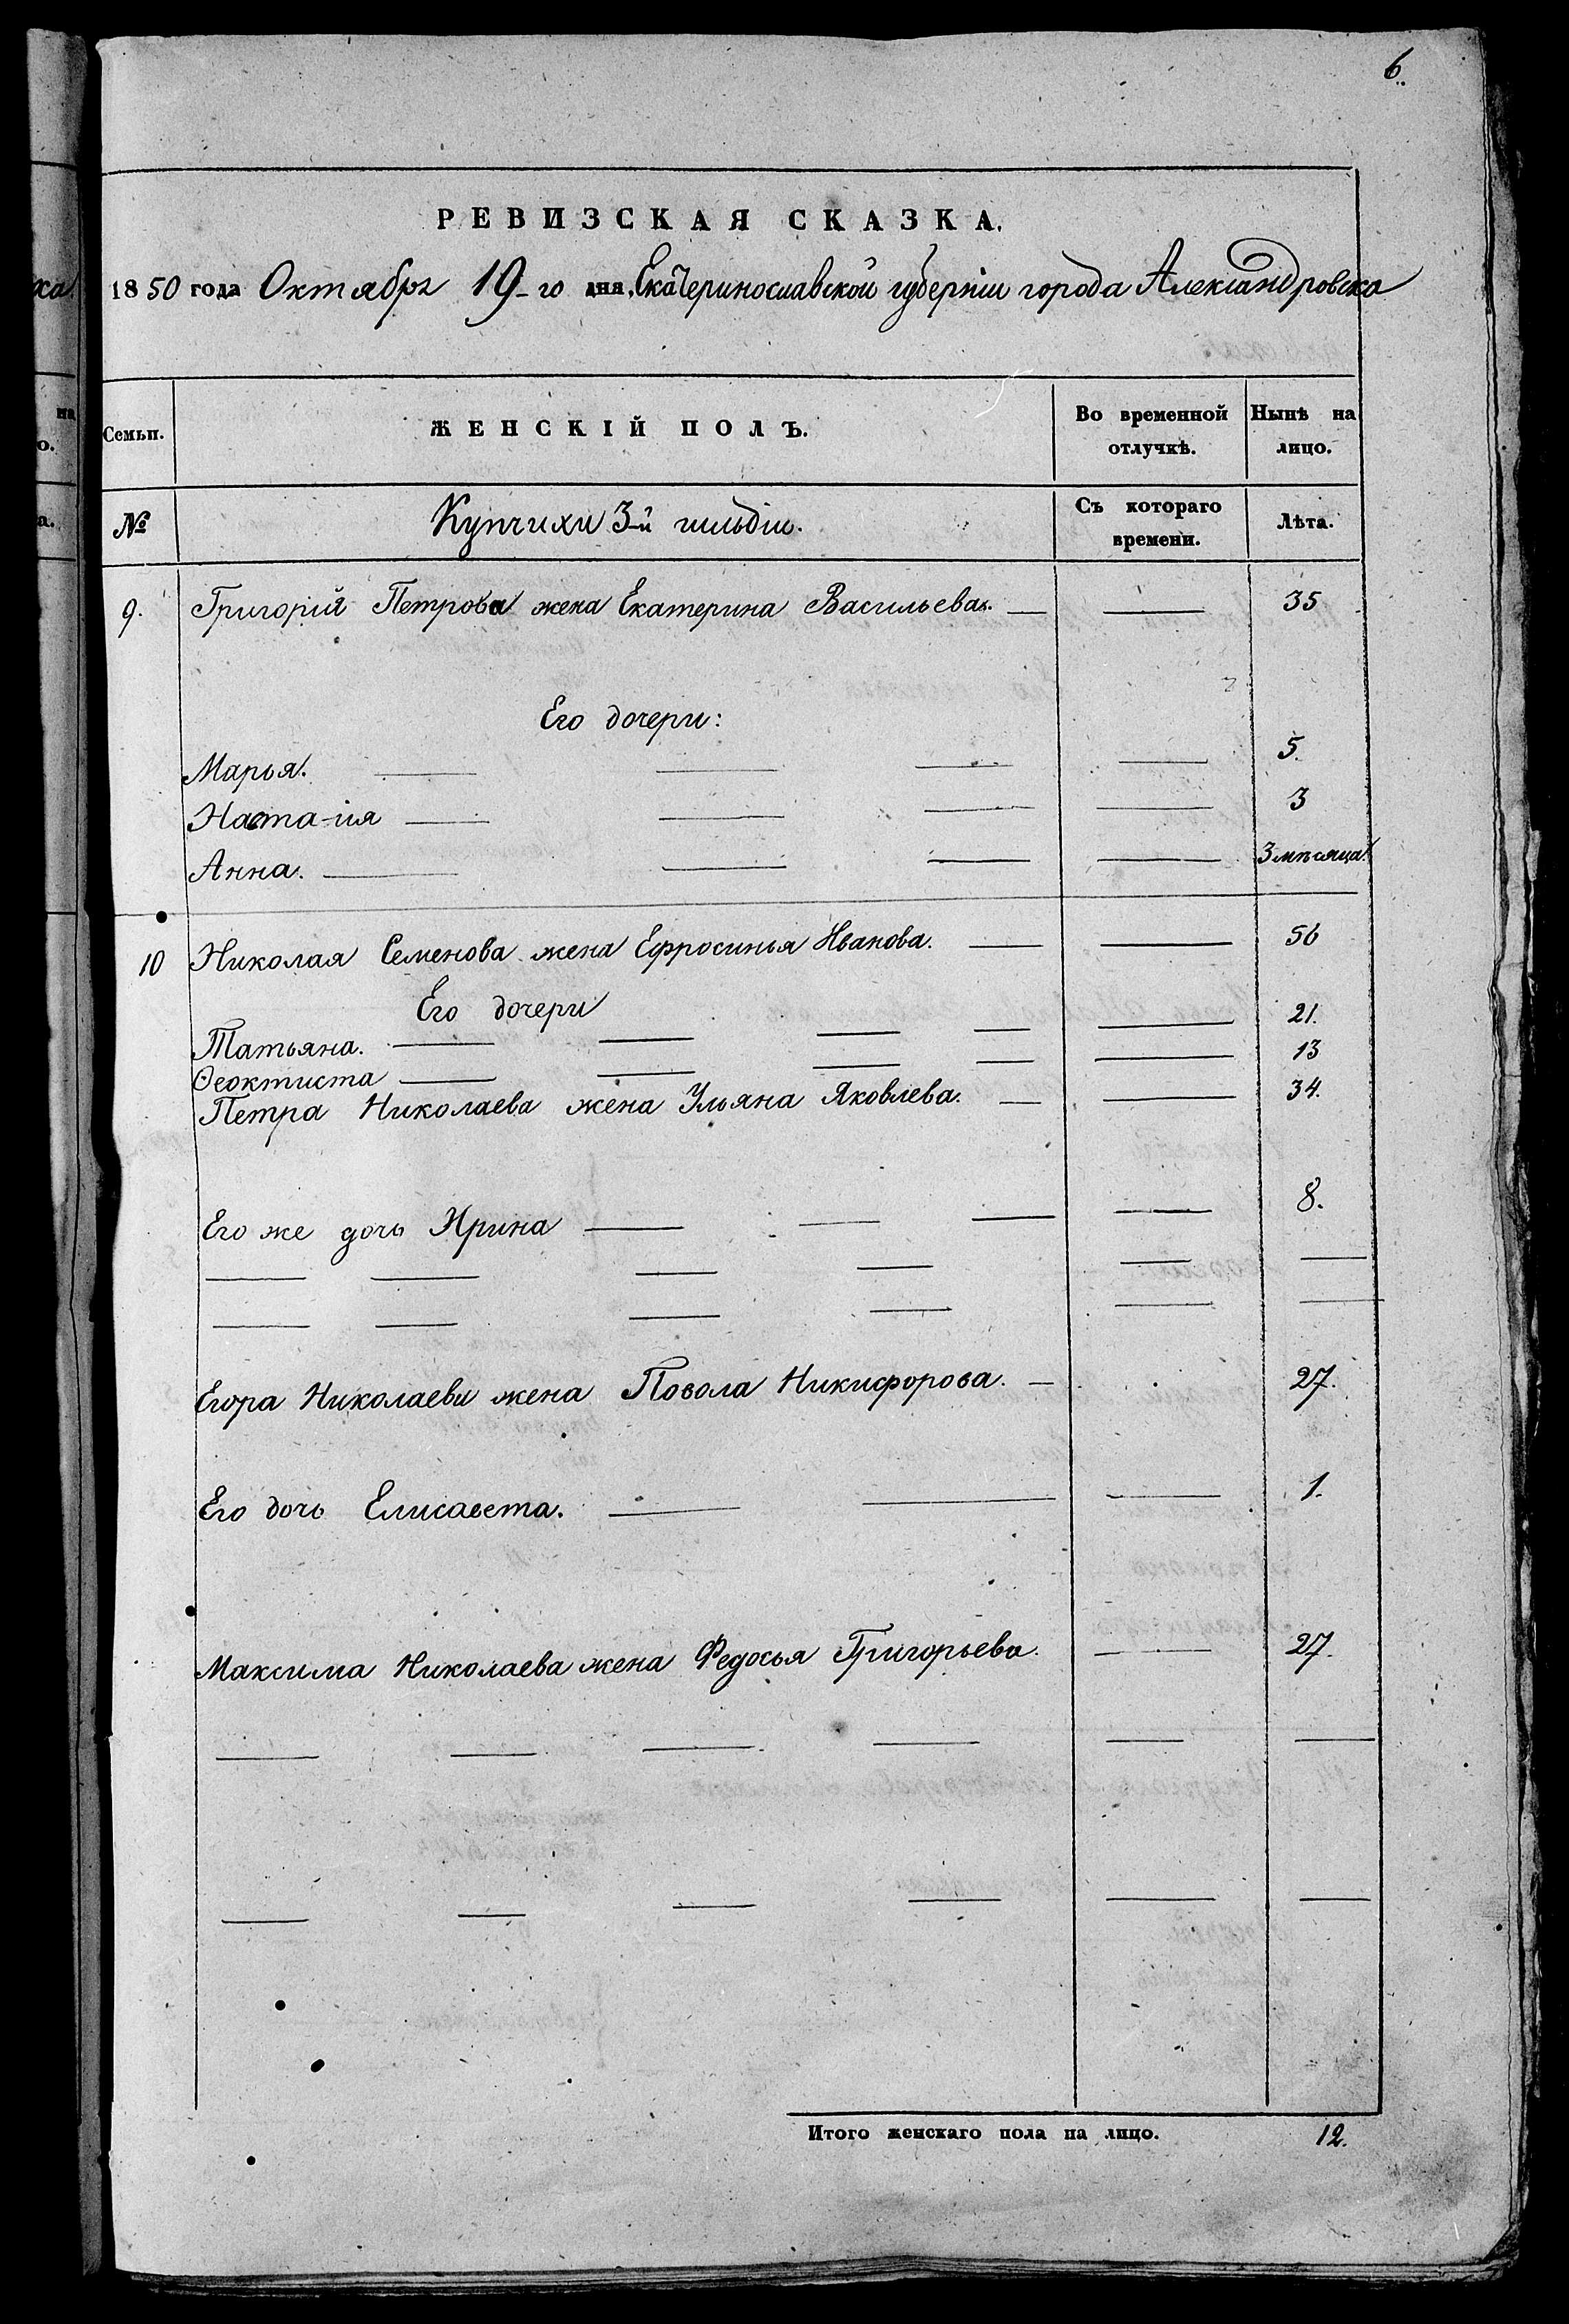 6.
РЕВИЗСКАЯ СКАЗКА.
1850 года Октября 19-го дня, Екатеринославской губерніи города Александровска
Семьи. ЖЕНСКІЙ ПОЛЪ. Во временной отлучкѣ. Нынѣ на лицо.
№ Купчихи 3-й гильдіи. Съ котораго времени. Лѣта.
9. Григорій Петрова жена Екатерина Васильева. 35
Его дочери:
Марья. 5.
Наста-ія 3
Анна. 3 мѣсяца.
10 Николая Семенова жена Ефросинья Иванова. 56
Его дочери
Татьяна. 21.
Ѳеоктиста 13
Петра Николаева жена Ульяна Яковлева. 34.
Его же дочь Ирина 8.
Егора Николаеви жена Повола Никифорова. 27.
Его дочь Елисавета. 1.
Максима Николаева жена Федосья Григорьева. 27.
Итого женскаго пола на лицо. 12.